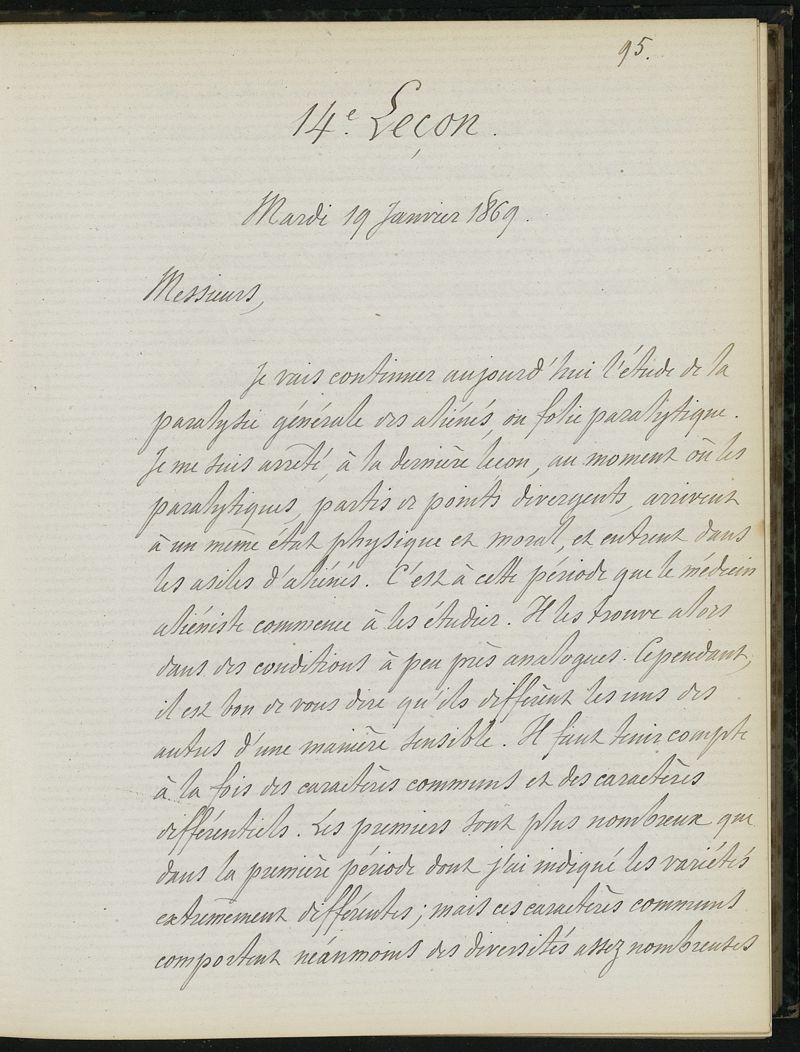 95.
14e. Leçon.
Mardi 19 Janvier 1869.
Messieurs,
Je vais continuer aujourd'hui l'étude de la
paralysie générale des aliénés, ou folie paralytique.
Je me suis arrêté, à la dernière leçon, au moment où les
paralytiques, partis de points divergents, arrivent
à un même état physique et moral, et entrent dans
les asiles d'aliénés. C'est à cette période que le médecin
aliéniste commence à les étudier. Il les trouve alors
dans des conditions à peu près analogues. Cependant,
il est bon de vous dire qu'ils diffèrent les uns des
autres d'une manière sensible. Il faut tenir compte
à la fois des caractères communs et des caractères
différentiels. Les premiers sont plus nombreux que
dans la première période dont j'ai indiqué les variétés
extrêmement différentes; mais ces caractères communs
comportent néanmoins des diversités assez nombreuses